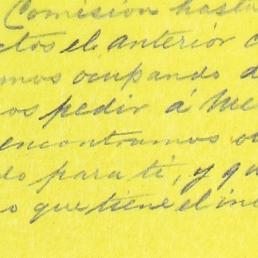 Comisión hasta
ctos el anterior c
mos ocupando d
os pedir á Me
encontramos o
lo para ti, y qu
o que tiene el in